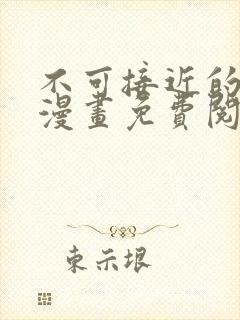 不可接近的
漫畫免費閱
東示垠